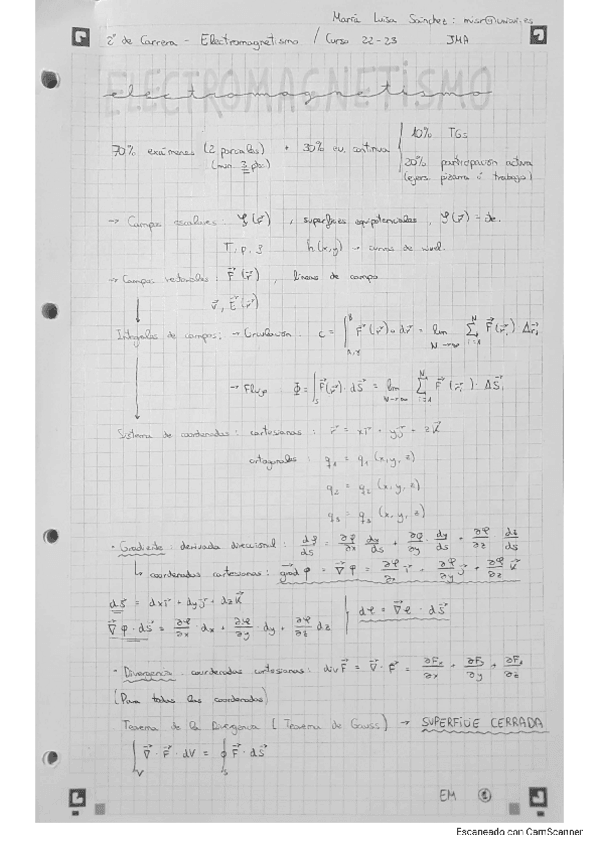 María Luisa Sánchez:
2º de Carrera - Electromagnetismo / Curso 22-23 JMA
ELECTROMAGNETISMO
electromagnetismo
70% exámenes (2 parciales) + 30% ev. continua { 10% TGs
(min. 3 pto) 20% participación activa
(ejers. pizarra o trabajo)
→ Campos escalares: φ(r⃗), superficies equipotenciales, φ(r⃗) = cte.
T, p, ρ h(x,y) → curvas de nivel.
→ Campos vectoriales: F⃗(r⃗), líneas de campo
v⃗, E⃗(r⃗)
Integrales de campos: → Circulación. C = ∫ F⃗(r⃗)·dr⃗ = lim N→∞ Σ i=1 N F⃗(r⃗i) Δr⃗i
→ Flujo Φ = ∫s F⃗(r⃗)·dS⃗ = lim N→∞ Σ i=1 N F⃗(r⃗i)·ΔS⃗i
Sistema de coordenadas: cartesianas: r⃗ = xi⃗ + yj⃗ + zk⃗
ortogonales: q1 = q1(x,y,z)
q2 = q2(x,y,z)
q3 = q3(x,y,z)
· Gradiente: derivada direccional: dφ/ds = ∂φ/∂x dx/ds + ∂φ/∂y dy/ds + ∂φ/∂z dz/ds
↳ coordenadas cartesianas: grad φ = ∇⃗φ = ∂φ/∂x i⃗ + ∂φ/∂y j⃗ + ∂φ/∂z k⃗
ds⃗ = dxi⃗ + dyj⃗ + dzk⃗
∇⃗φ·ds⃗ = ∂φ/∂x dx + ∂φ/∂y dy + ∂φ/∂z dz
dφ = ∇⃗φ·ds⃗
· Divergencia: coordenadas cartesianas: div F⃗ = ∇⃗·F⃗ = ∂Fx/∂x + ∂Fy/∂y + ∂Fz/∂z
(Para todas las coordenadas)
Teorema de la Divergencia (Teorema de Gauss) → SUPERFICIE CERRADA
∫v ∇⃗·F⃗·dV = ∮s F⃗·dS⃗
EM 1
Escaneado con CamScanner